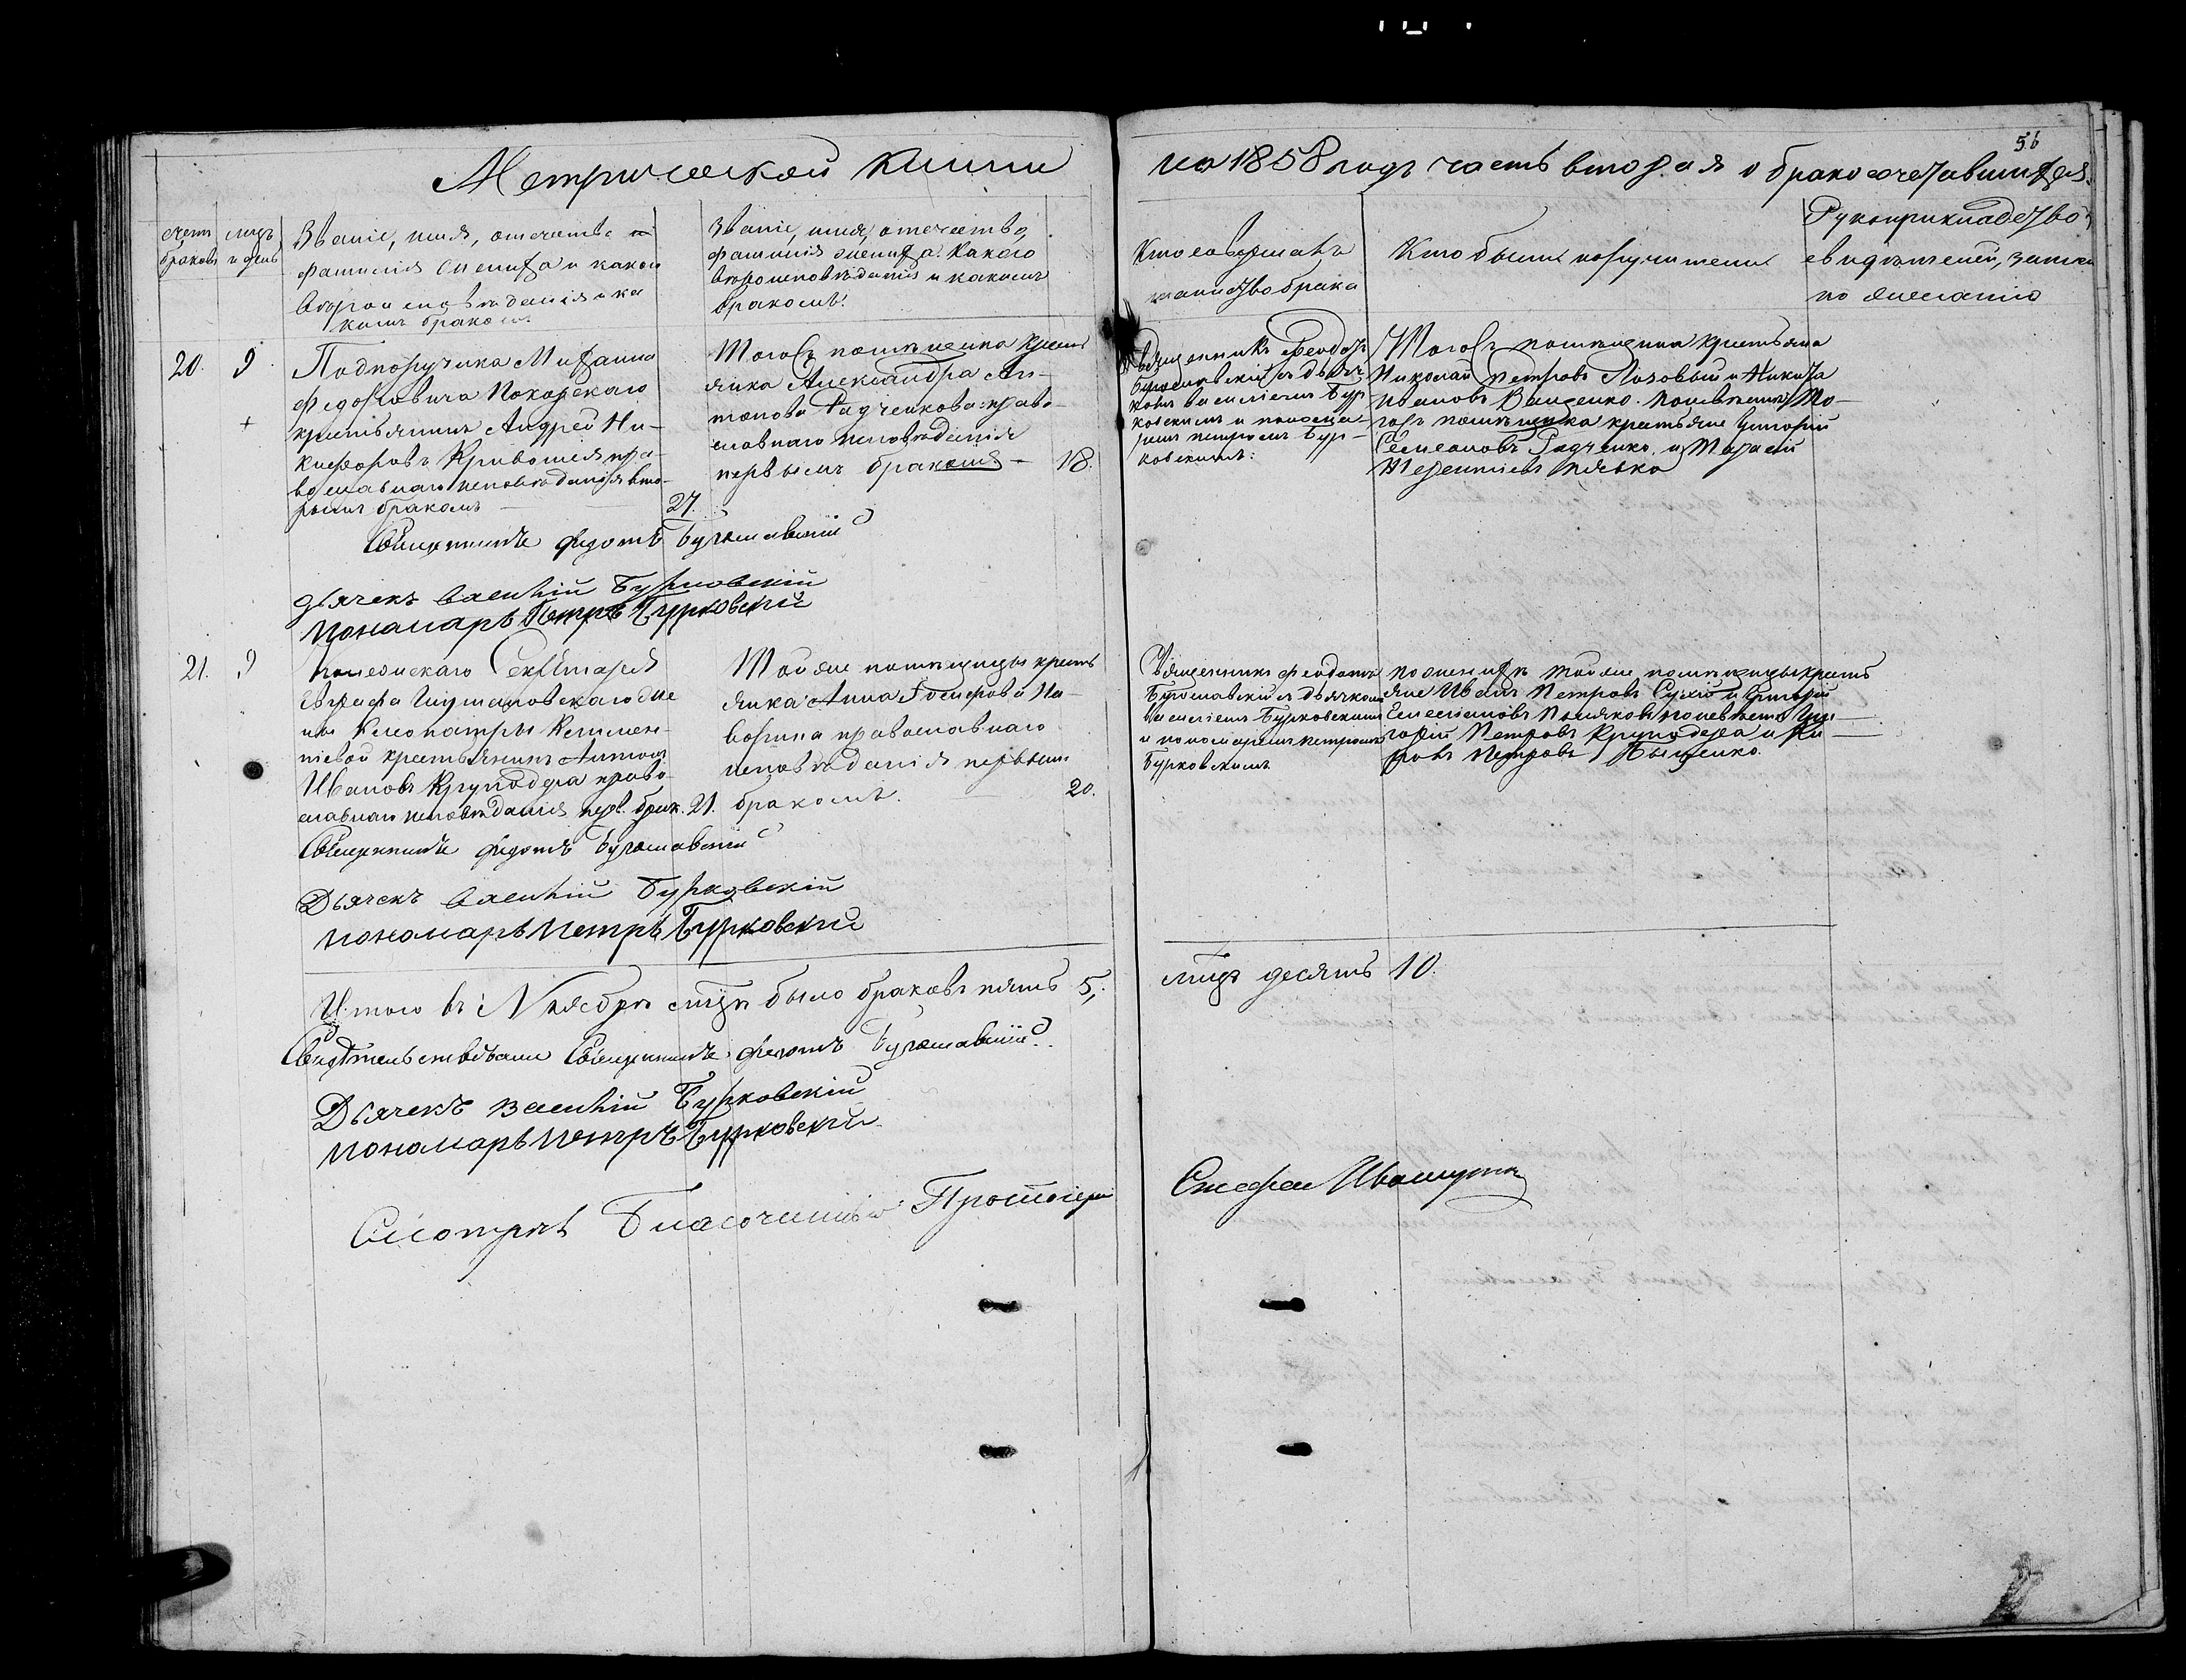 Метрической книги
на 1858 годъ часть вторая о бракосочетавшихся.
56
счетъ
браковъ
мцъ
и день
Званіе, имя, отечество и
фамилія жениха и какого
вѣроисповѣданія и ка
кимъ бракомъ.
Званіе, имя, отечество,
фамилія жениха. Какого
вѣроисповѣданія и какимъ
бракомъ.
Кто совершалъ
таинство брака
Кто были поручители
Рукоприкладство
свидѣтелей, записи
по желанію
20.
9
Подпоручика Михаила
Федоровича Похорскаго
крестьянинъ Андрей Ни-
кифоровъ Кривошея пра-
вославнаго исповѣданія вто-
рымъ бракомъ
27.
Тогожъ помѣщика крест
янка Александра Ан-
тонова Радченкова право-
славнаго исповѣданія
первымъ бракомъ – 18.
Священникъ Феодотъ
Бугославскій съ дьяч
комъ Василіемъ Бур
ковскимъ и понома
ремъ Петромъ Бур-
ковскимъ:
Тогожъ помѣщика крестьяна
Николай Петровъ Лозовый и Никита
Ивановъ Ващенко. по невѣстѣ То-
гожъ помѣщика крестьяне Григорій
Семеоновъ Радченко и Тарасій
Терентіевъ
Священникъ Федотъ Бугославскій
Дьячекъ Василій Бурковскій
Пономарь Петръ Бурковскій
21.
9
Колежскаго Секретаря
Евграфа Шумановскаго же
ны Клеопатры Клемен-
тіевой крестьянинъ Антонъ
Ивановъ Круподера право-
славнаго исповѣданія перв. брак. 21.
Той же помѣщицы кресть
янка Анна Іосифова На-
ворина православнаго
исповѣданія первымъ
бракомъ. 20.
Священникъ Феодотъ
Бугославскій съ дьячкомъ
Василіемъ Бурковскимъ
и пономаремъ Петромъ
Бурковскимъ
по женихѣ той же помѣщицы кресть
яне Иванъ Петровъ Сухій и Григорій
Емеліановъ Поляковъ по невѣстѣ Гри
горій Петровъ Круподера и Ки
ровъ Петровъ
Священникъ Федотъ Бугославскій
Дьячекъ Василій Бурковскій
Пономарь Петръ Бурковскій
Итого въ Ноябрѣ мцѣ было браковъ пять 5,
лицъ десять 10.
Свидѣтельствовали Священникъ Федотъ Бугославскій.
Дьячекъ Василій Бурковскій
Пономарь Петръ Бурковскій
Смотрѣлъ Благочинный Протоіерей
Стефан